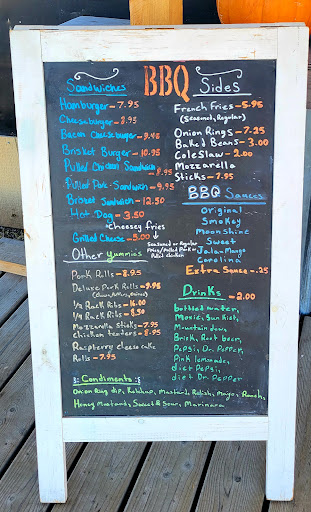 BBQ
Sandwiches
Hamburger - 7.95
Cheeseburger - 8.95
Bacon Cheeseburger - 9.95
Brisket Burger - 10.95
Pulled Chicken Sandwich 8.95
Pulled Pork Sandwich - 9.95
Brisket Sandwich - 12.50
Hot Dog - 3.50
Grilled Cheese - 5.00
Cheesey fries
Seasoned or Regular
Fries/Pulled Pork or
Pulled chicken
Other Yummies
Pork Rolls - 8.95
Deluxe Pork Rolls - 9.95
1/2 Rack Ribs - 16.00
1/4 Rack Ribs - 8.50
Mozzarella Sticks - 7.95
chicken tenders - 8.95
Raspberry cheese cake
Rolls - 7.95
Condiments
Onion Ring dip, Ketchup, Mustard, Relish, Mayo, Ranch,
Honey Mustard, Sweet & Sour, Marinara
Sides
French Fries - 5.95
(Seasoned, Regular)
Onion Rings - 7.25
Baked Beans - 3.00
Cole Slaw - 2.00
Mozzarella
Sticks - 7.95
BBQ Sauces
Original
Smokey
Moonshine
Sweet
Jala-Mango
Carolina
Extra Sauce - .25
Drinks - 2.00
bottled water,
Moxie, Sunkist,
Mountain dew
Brisk, Root beer,
Pepsi, Dr. Pepper,
Pink lemonade,
diet Pepsi,
diet Dr. Pepper